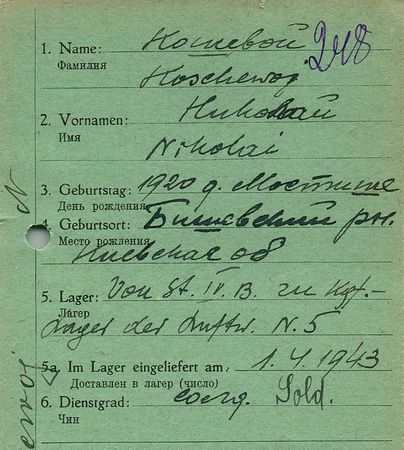 1. Name: Кошевой 248
Фамилия
Koschewoy
2. Vornamen: Николай
Имя
Nikolai
3. Geburtstag: 1920 д. Мостище
День рождения
4. Geburtsort: Бишевский рн.
Место рождения
Киевская об
5. Lager: Von St. IV. B. zu Kgf.-
Лагерь
Lager der Luftw. N. 5
5a. Im Lager eingeliefert am: 1. 4. 1943
Доставлен в лагерь (число)
6. Dienstgrad: Sold.
Чин